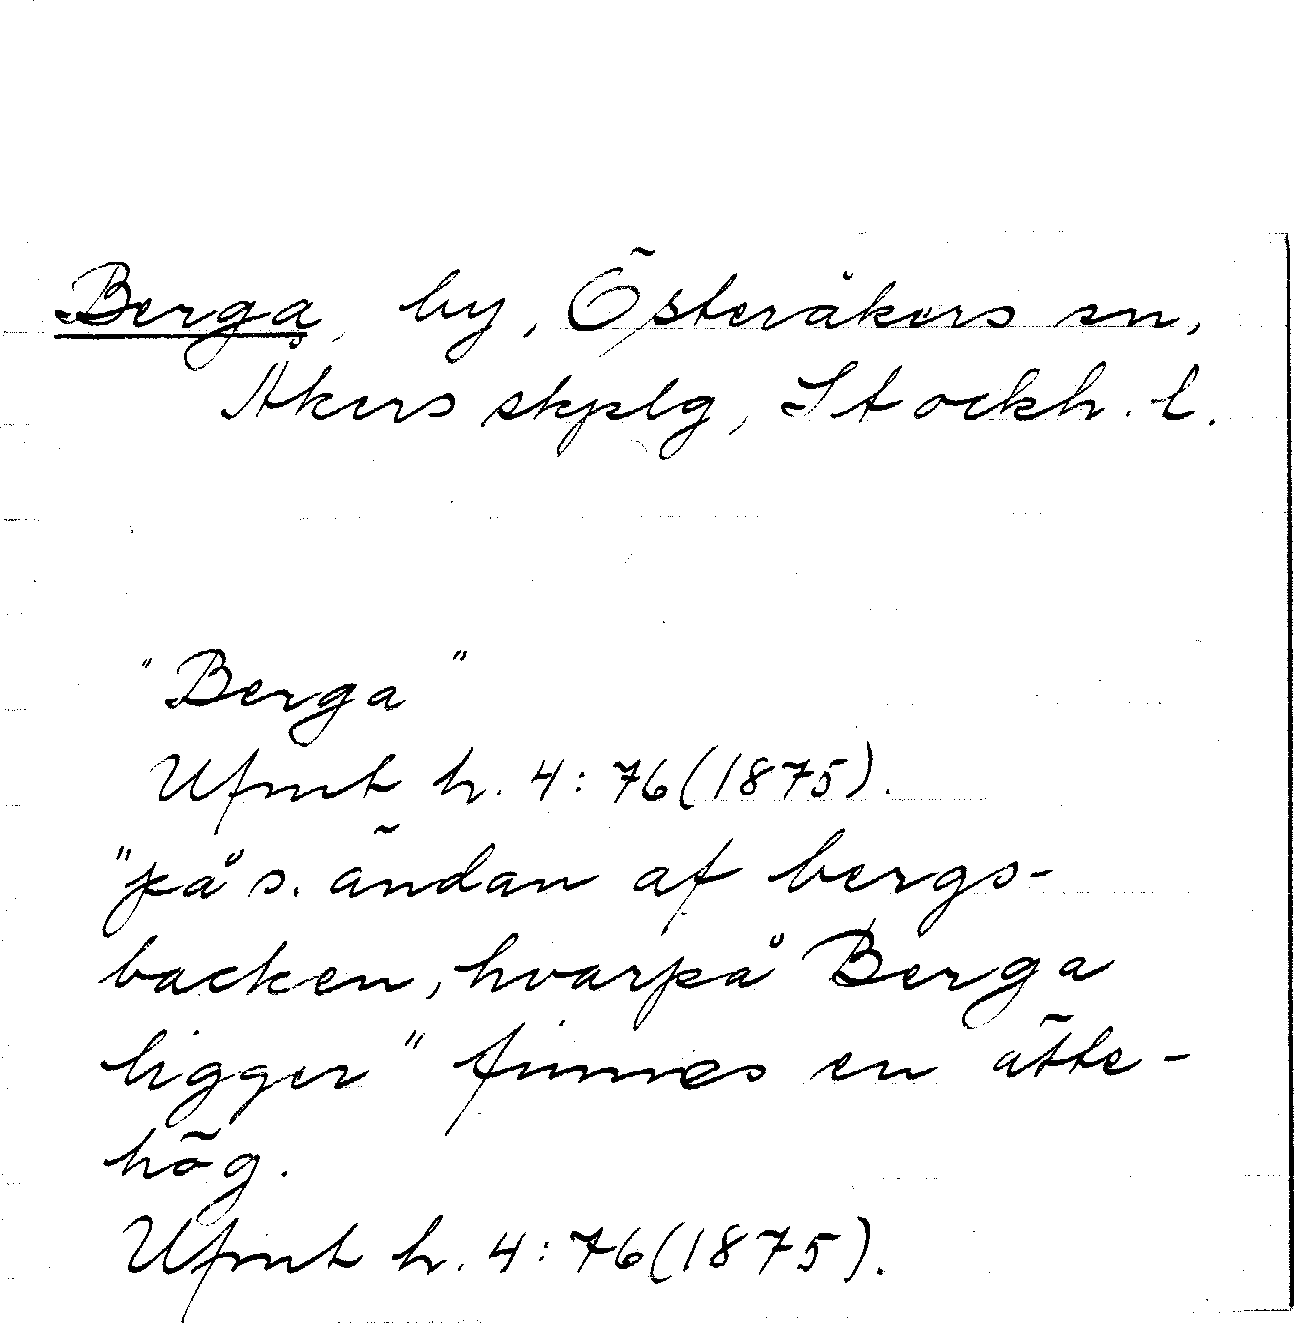 Berga, by, Österåkers sn,
Åkers skplg, Stockh. l.
"Berga"
Ufmt h. 4:76(1875).
"på s. ändan af bergs-
backen, hvarpå Berga
ligger" finnes en ätte-
hög.
Ufmt h. 4:76(1875).